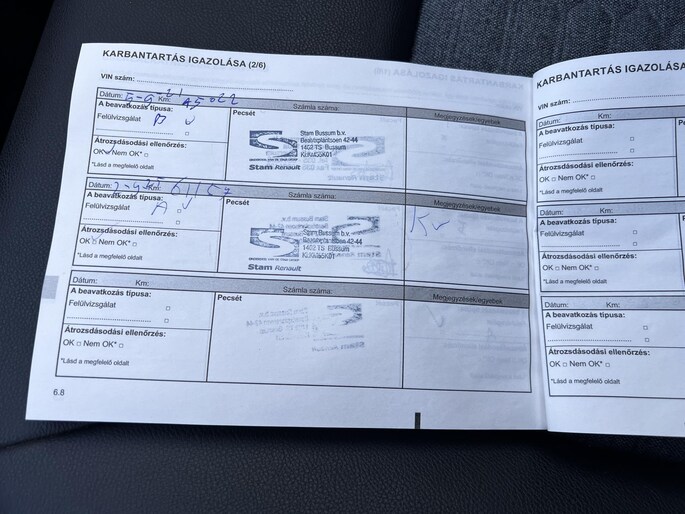 KARBANTARTÁS IGAZOLÁSA (2/6)
VIN szám:
Dátum: 5-9-21 Km: 45 022 Számla száma:
A beavatkozás típusa: Pecsét Megjegyzések/egyebek
Felülvizsgálat B
Stam Bussum b.v.
1402 TS Bussum
Stam Renault
Átrozsdásodási ellenőrzés:
OK Nem OK*
*Lásd a megfelelő oldalt
Dátum: Km: Számla száma:
A beavatkozás típusa: Pecsét Megjegyzések/egyebek
Felülvizsgálat A
Stam Bussum b.v.
1402 TS Bussum
Stam Renault
Átrozsdásodási ellenőrzés:
OK Nem OK*
*Lásd a megfelelő oldalt
Dátum: Km: Számla száma:
A beavatkozás típusa: Pecsét Megjegyzések/egyebek
Felülvizsgálat
Átrozsdásodási ellenőrzés:
OK Nem OK*
*Lásd a megfelelő oldalt
6.8
KARBANTARTÁS IGAZOLÁSA
VIN szám:
Dátum: Km:
A beavatkozás típusa:
Felülvizsgálat
Átrozsdásodási ellenőrzés:
OK Nem OK*
*Lásd a megfelelő oldalt
Dátum: Km:
A beavatkozás típusa:
Felülvizsgálat
Átrozsdásodási ellenőrzés:
OK Nem OK*
*Lásd a megfelelő oldalt
Dátum: Km:
A beavatkozás típusa:
Felülvizsgálat
Átrozsdásodási ellenőrzés:
OK Nem OK*
*Lásd a megfelelő oldalt